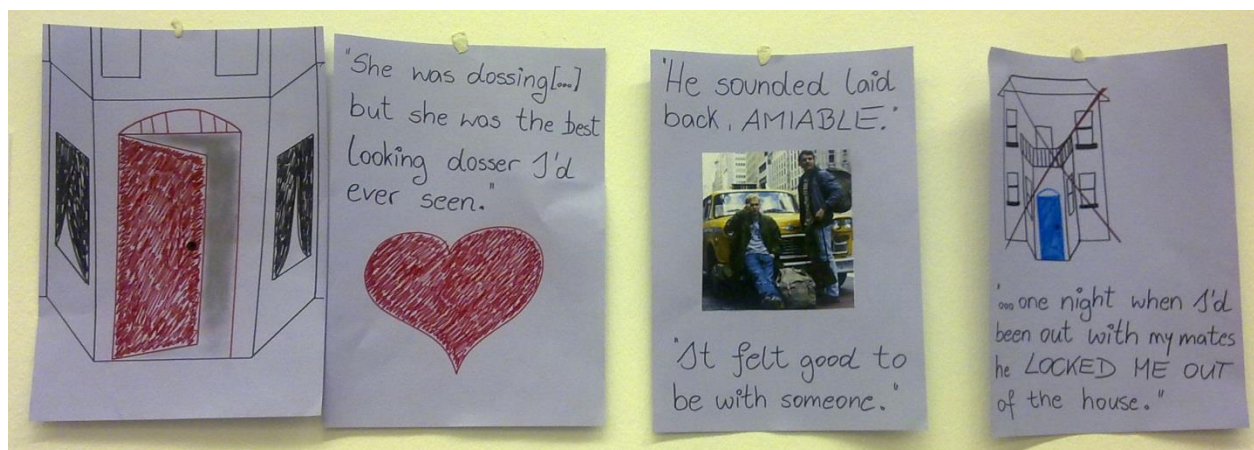 "She was dossing[...]
but she was the best
looking dosser I'd
ever seen."
"He sounded laid
back, AMIABLE."
"It felt good to
be with someone."
"...one night when I'd
been out with my mates
he LOCKED ME OUT
of the house."